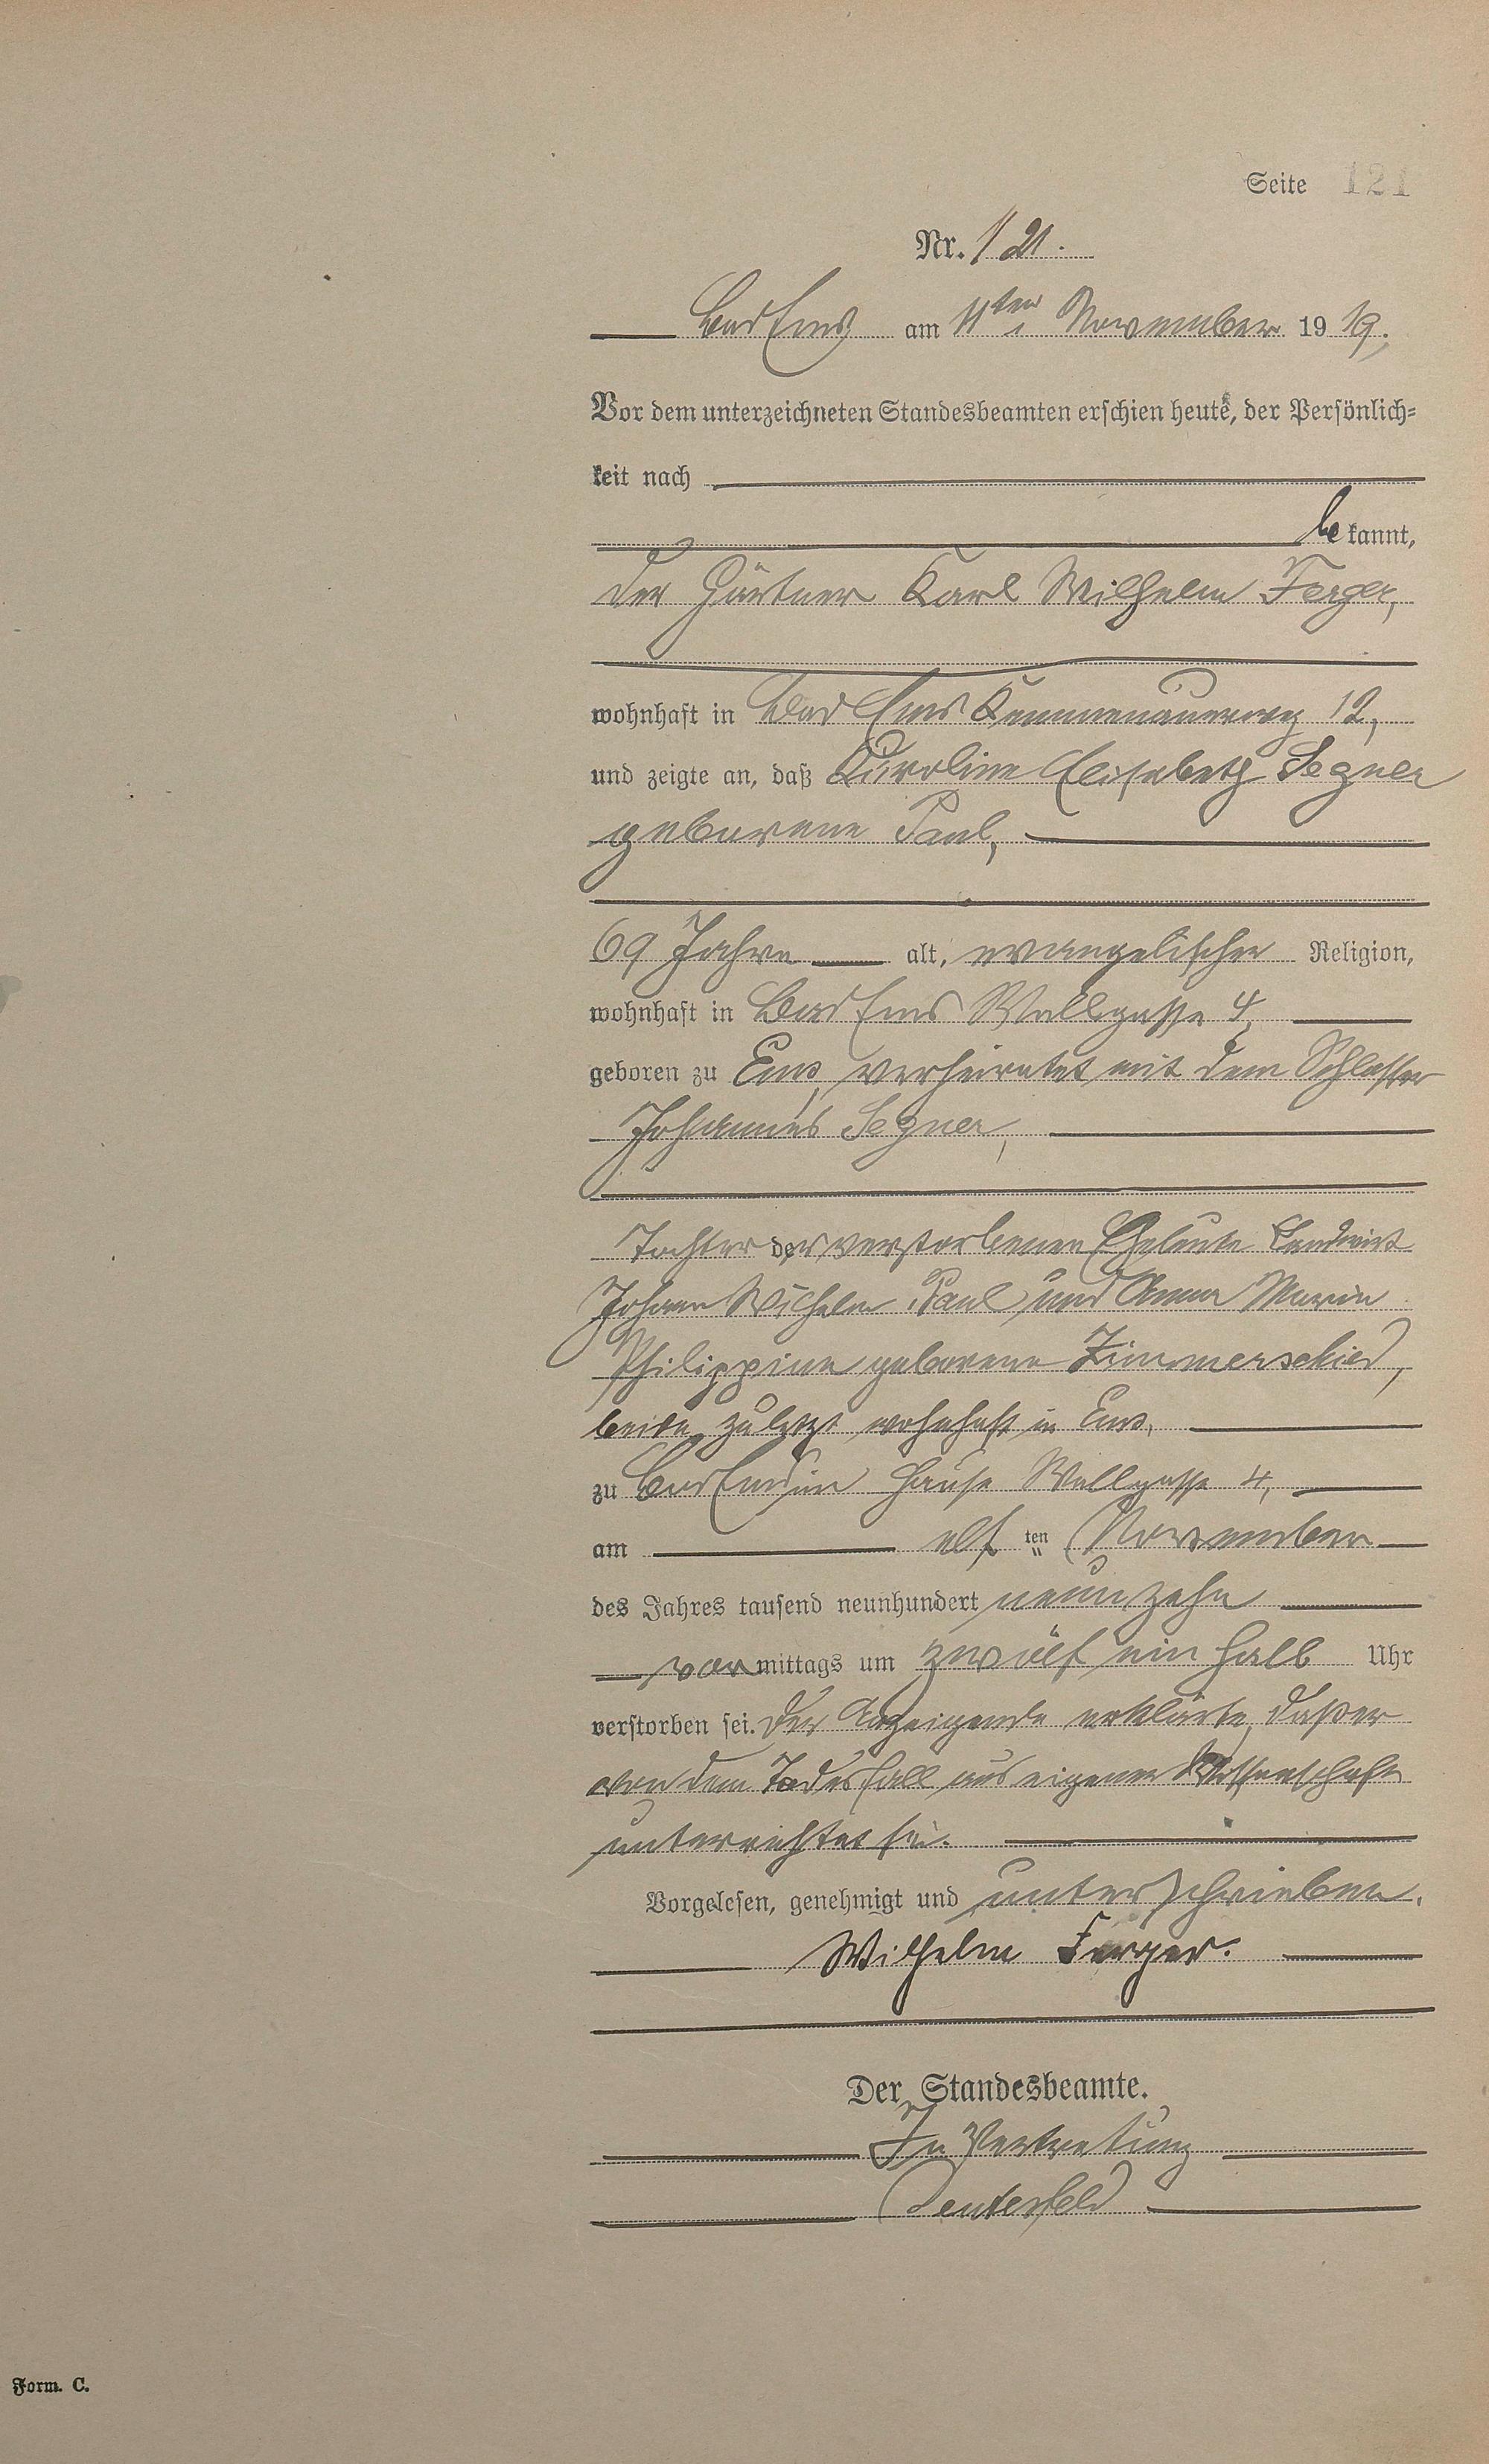 Seite 121
Nr. 121.
Bad Ems am 11ten November 19 19.
Vor dem unterzeichneten Standesbeamten erschien heute, der Persönlich=
keit nach
be kannt,
der Gärtner Karl Wilhelm Ferger,
wohnhaft in Bad Ems Kemmenauerweg 12,
und zeigte an, daß Karoline Elisabeth Segner
geborene Paul,
69 Jahre alt, evangelischer Religion,
wohnhaft in Bad Ems Wallgasse 4,
geboren zu Ems, verheiratet mit dem Schlosser
Johannes Segner,
Tochter der verstorbenen Eheleute Landwirt
Johann Wilhelm Paul und Anna Maria
Philippine geborene Zimmerschied,
beide zuletzt wohnhaft in Ems,
zu Bad Ems im Hause Wallgasse 4,
am elf ten November
des Jahres tausend neunhundert neunzehn
vor mittags um zwölf ein halb Uhr
verstorben sei. Der Anzeigende erklärte, daß er
von dem Todesfall aus eigener Wissenschaft
unterrichtet sei.
Vorgelesen, genehmigt und unterschrieben.
Wilhelm Ferger.
Der Standesbeamte.
In Vertretung
Form. C.